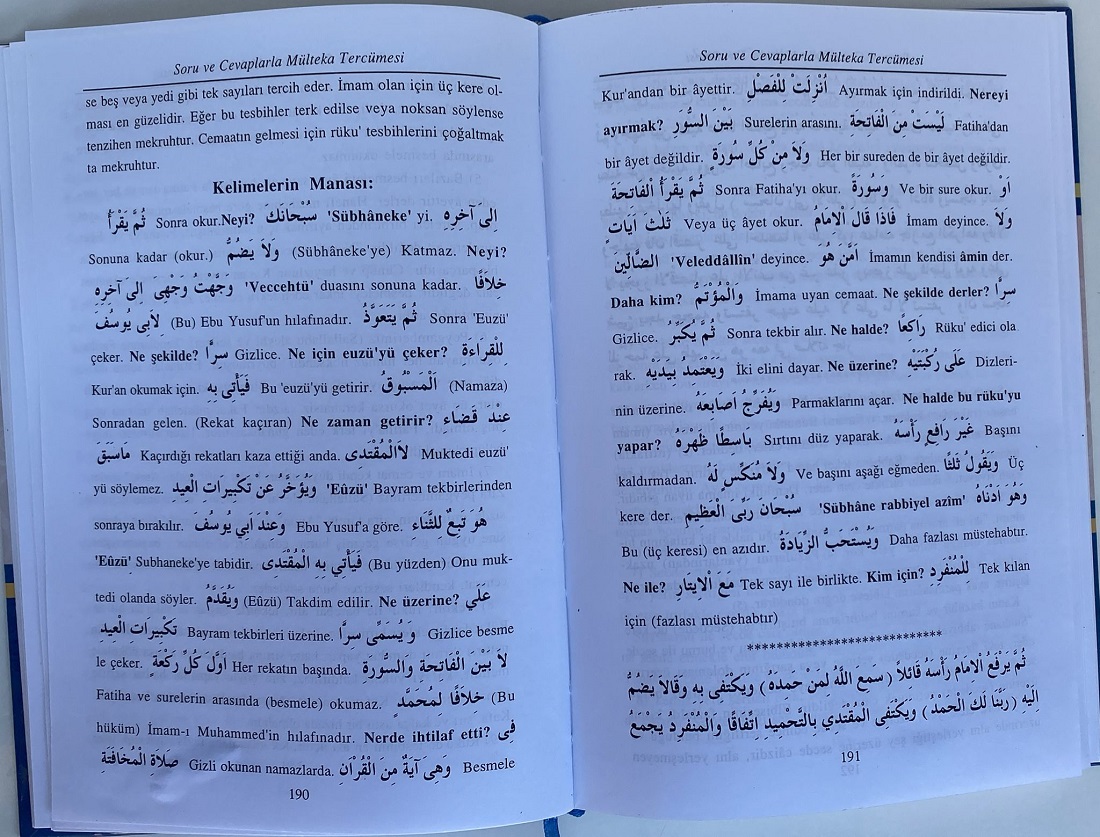 Soru ve Cevaplarla Mülteka Tercümesi
se beş veya yedi gibi tek sayıları tercih eder. İmam olan için üç kere ol-
ması en güzelidir. Eğer bu tesbihler terk edilse veya noksan söylense
tenzihen mekruhtur. Cemaatın gelmesi için rüku' tesbihlerini çoğaltmak
ta mekruhtur.
Kelimelerin Manası:
ثُمَّ يَقْرَأُ Sonra okur.Neyi? سُبْحَانَكَ 'Sübhâneke' yi. اِلَى آخِرِهِ
Sonuna kadar (okur.) وَلَا يَضُمُّ (Sübhâneke'ye) Katmaz. Neyi?
وَجَّهْتُ وَجْهِىَ اِلَى آخِرِهِ 'Veccehtü' duasını sonuna kadar. خِلَافًا
لِاَبِى يُوسُفَ (Bu) Ebu Yusuf'un hılafınadır. ثُمَّ يَتَعَوَّذُ Sonra 'Euzü'
çeker. Ne şekilde? سِرًّا Gizlice. Ne için euzü'yü çeker? لِلْقِرَاءَةِ
Kur'an okumak için. فَيَأْتِى بِهِ Bu 'euzü'yü getirir. اَلْمَسْبُوقُ (Namaza)
Sonradan gelen. (Rekat kaçıran) Ne zaman getirir? عِنْدَ قَضَاءِ
مَاسَبَقَ Kaçırdığı rekatları kaza ettiği anda. لَاالْمُقْتَدِى Muktedi euzü'
yü söylemez. وَيُؤَخَّرُ عَنْ تَكْبِيرَاتِ الْعِيدِ 'Eûzü' Bayram tekbirlerinden
sonraya bırakılır. وَعِنْدَ اَبِي يُوسُفَ Ebu Yusuf'a göre. هُوَ تَبِعٌ لِلثَّنَاءِ
'Eûzü' Subhaneke'ye tabidir. فَيَأْتِي بِهِ الْمُقْتَدِى (Bu yüzden) Onu muk-
tedi olanda söyler. وَيُقَدَّمُ (Eûzü) Takdim edilir. Ne üzerine? عَلَي
تَكْبِيرَاتِ الْعِيدِ Bayram tekbirleri üzerine. وَ يُسَمِّى سِرًّا Gizlice besme
le çeker. اَوَّلَ كُلِّ رَكْعَةٍ Her rekatın başında. لَا بَيْنَ الْفَاتِحَةِ وَالسُّورَةِ
Fatiha ve surelerin arasında (besmele) okumaz. خِلَافًا لِمُحَمَّدٍ (Bu
hüküm) İmam-ı Muhammed'in hılafınadır. Nerde ihtilaf etti? فِى
صَلَاةِ الْمُخَافَتَةِ Gizli okunan namazlarda. وَهِىَ آيَةٌ مِنَ الْقُرْآنِ Besmele
190
Soru ve Cevaplarla Mülteka Tercümesi
Kur'andan bir âyettir. اُنْزِلَتْ لِلْفَصْلِ Ayırmak için indirildi. Nereyi
ayırmak? بَيْنَ السُّوَرِ Surelerin arasını. لَيْسَتْ مِنَ الْفَاتِحَةِ Fatiha'dan
bir âyet değildir. وَلَا مِنْ كُلِّ سُورَةٍ Her bir sureden de bir âyet değildir.
ثُمَّ يَقْرَأُ الْفَاتِحَةَ Sonra Fatiha'yı okur. وَسُورَةً Ve bir sure okur. اَوْ
ثَلٰثَ اٰيَاتٍ Veya üç âyet okur. فَاِذَا قَالَ الْاِمَامُ İmam deyince. وَلَا
الضَّالِّينَ 'Veleddâllîn' deyince. اَمَّنَ هُوَ İmamın kendisi âmin der.
Daha kim? وَالْمُؤْتَمُّ İmama uyan cemaat. Ne şekilde derler? سِرًّا
Gizlice. ثُمَّ يُكَبِّرُ Sonra tekbir alır. Ne halde? رَاكِعًا Rüku' edici ola
rak. وَيَعْتَمِدُ بِيَدَيْهِ İki elini dayar. Ne üzerine? عَلَى رُكْبَتَيْهِ Dizleri-
nin üzerine. وَيُفَرِّجُ اَصَابِعَهُ Parmaklarını açar. Ne halde bu rüku'yu
yapar? بَاسِطًا ظَهْرَهُ Sırtını düz yaparak. غَيْرَ رَافِعٍ رَأْسَهُ Başını
kaldırmadan. وَلَا مُنَكِّسٍ لَهُ Ve başını aşağı eğmeden. وَيَقُولُ ثَلٰثًا Üç
kere der. سُبْحَانَ رَبِّىَ الْعَظِيمِ 'Sübhâne rabbiyel azîm' وَهُوَ اَدْنَاهُ
Bu (üç keresi) en azıdır. وَيُسْتَحَبُّ الزِّيَادَةُ Daha fazlası müstehabtır.
Ne ile? مَعَ الْاِيتَارِ Tek sayı ile birlikte. Kim için? لِلْمُنْفَرِدِ Tek kılan
için (fazlası müstehabtır)
****************************
ثُمَّ يَرْفَعُ الْاِمَامُ رَأْسَهُ قَائِلاً ( سَمِعَ اللَّهُ لِمَنْ حَمِدَهُ ) وَيَكْتَفِى بِهِ وَقَالَا يَضُمُّ
اِلَيْهِ ( رَبَّنَا لَكَ الْحَمْدُ ) وَيَكْتَفِى الْمُقْتَدِي بِالتَّحْمِيدِ اتِّفَاقًا وَالْمُنْفَرِدُ يَجْمَعُ
191